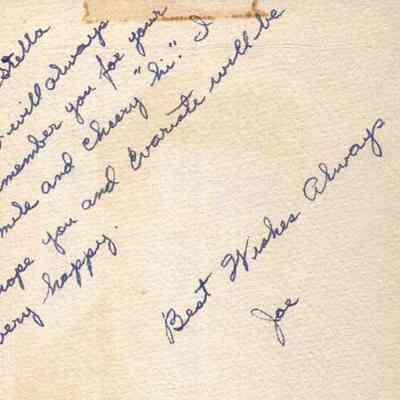 stella
I will always
remember you for your
smile and cheery "hi". I
hope you and Evariste will be
very happy.
Best Wishes Always
Joe